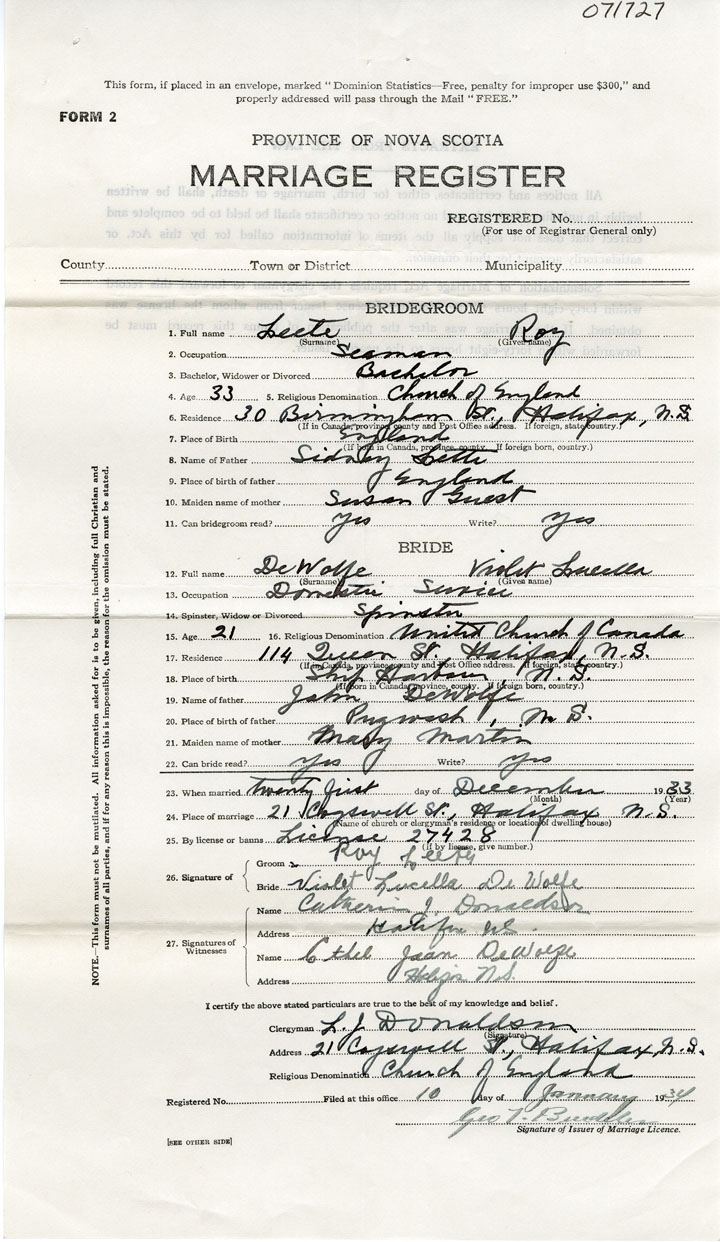 071727
This form, if placed in an envelope, marked "Dominion Statistics—Free, penalty for improper use $300," and
properly addressed will pass through the Mail "FREE."
FORM 2
PROVINCE OF NOVA SCOTIA
MARRIAGE REGISTER
REGISTERED No.
(For use of Registrar General only)
County Town or District Municipality
BRIDEGROOM
1. Full name Leete Roy
(Surname) (Given name)
2. Occupation Seaman
3. Bachelor, Widower or Divorced Bachelor
4. Age 33 5. Religious Denomination Church of England
6. Residence 30 Birmingham St., Halifax, N.S.
(If in Canada, province, county and Post Office address. If foreign, state country.)
7. Place of Birth England
(If born in Canada, province, county. If foreign born, country.)
8. Name of Father Sidney Leete
9. Place of birth of father England
10. Maiden name of mother Susan Guest
11. Can bridegroom read? Yes Write? Yes
BRIDE
12. Full name DeWolfe Violet Lucella
(Surname) (Given name)
13. Occupation Domestic Service
14. Spinster, Widow or Divorced Spinster
15. Age 21 16. Religious Denomination United Church of Canada
17. Residence 114 Queen St., Halifax, N.S.
(If in Canada, province, county and Post Office address. If foreign, state country.)
18. Place of birth Ship Harbour N.S.
(If born in Canada, province, county. If foreign born, country.)
19. Name of father John DeWolfe
20. Place of birth of father Pugwash, N.S.
21. Maiden name of mother Mary Martin
22. Can bride read? Yes Write? Yes
23. When married twenty first day of December 1933
(Month) (Year)
24. Place of marriage 21 Cogswell St., Halifax N.S.
(Name of church or clergyman's residence or location of dwelling house)
25. By license or banns License 27428
(If by license, give number.)
26. Signature of
Groom Roy Leete
Bride Violet Lucella De Wolfe
27. Signatures of Witnesses
Name Catherine J. Donaldson
Address Halifax N.S.
Name Ethel Jean DeWolfe
Address Halifax N.S.
I certify the above stated particulars are true to the best of my knowledge and belief.
Clergyman L. J. Donaldson
(Signature)
Address 21 Cogswell St., Halifax, N.S.
Religious Denomination Church of England
Registered No. Filed at this office 10 day of January 1934
Geo
Signature of Issuer of Marriage Licence.
[SEE OTHER SIDE]
NOTE.—This form must not be mutilated. All information asked for is to be given, including full Christian and
surnames of all parties, and if for any reason this is impossible, the reason for the omission must be stated.